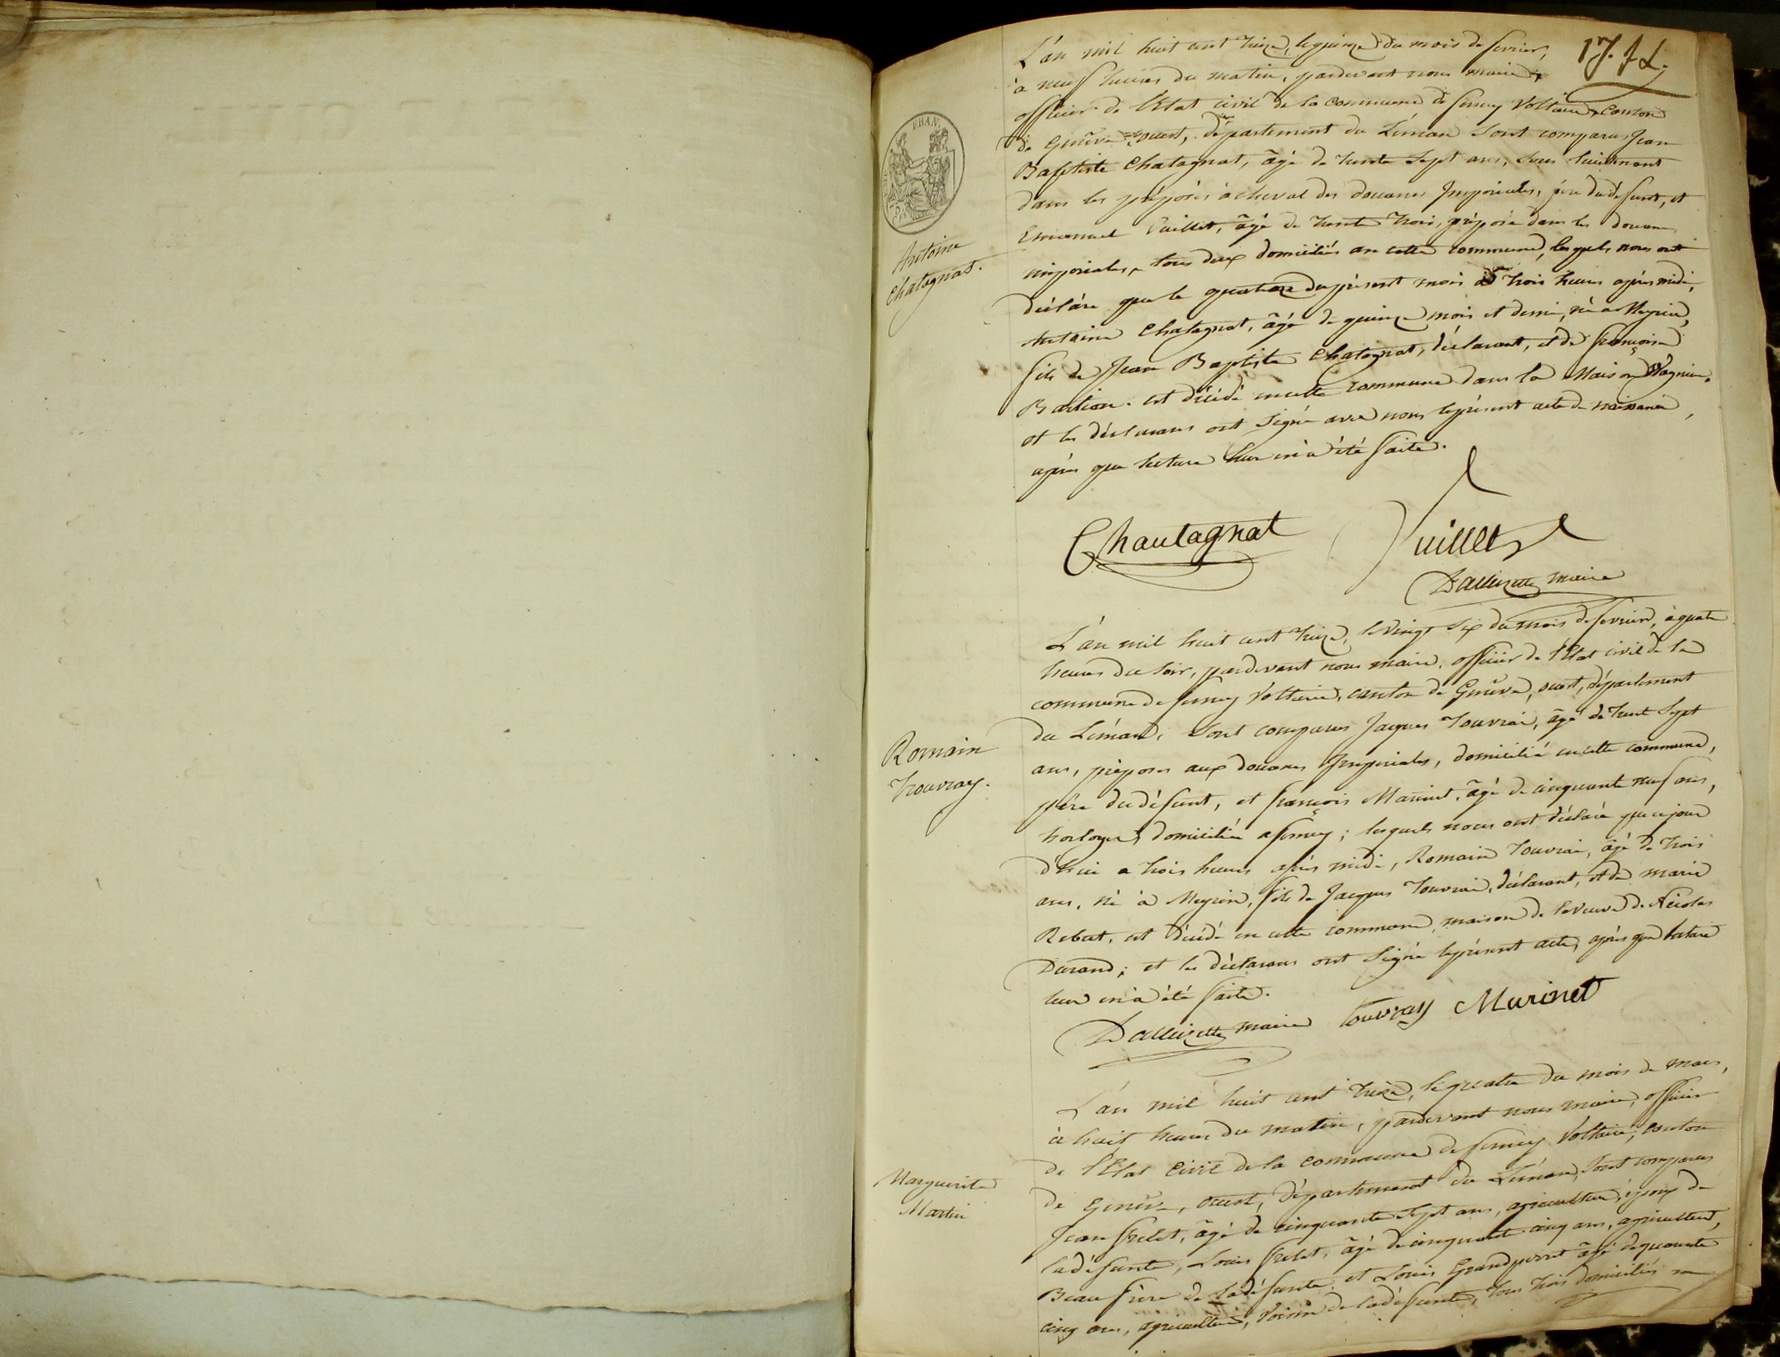 17. f L.
L'an mil huit cent treize, le quinze du mois de fevrier,
à neuf heures du matin, pardevant nous maire
officier de l'Etat civil de la commune de ferney Voltaire, canton
de Genève ouest, département du Léman sont comparus Jean
Baptiste Chatagnat, âgé de trente sept ans, sous lieutenant
dans les préposés à cheval des douanes Impériales, père du défunt, et
Emanuel Vuillet, âgé de trente trois, préposé dans les douanes
impériales, tous deux domiciliés en cette commune, lesquels nous ont
déclaré que le quatorze du présent mois à trois heures après midi,
Antoine Chatagnat, âgé de quinze mois et demi, né à Meyrin,
fils de Jean Baptiste Chatagnat, déclarant, et de françoise
est décédé en cette commune dans la Maison
et les déclarans ont signé avec nous le présent acte de naissance,
après que lecture leur en a été faite.
Antoine
Chatagnat.
Chautagnat Vuillet
maire
L'an mil huit cent treize, le vingt six du mois de fevrier, à quatre
heures du soir, pardevant nous maire, officier de l'Etat civil de la
commune de ferney Voltaire, canton de Genève, ouest, département
du Léman, sont comparus Jacques Touvrai, âgé de trente sept
ans, préposé aux douanes Impériales, domicilié en cette commune,
père du défunt, et françois Marinet, âgé de cinquante neuf ans,
horloger, domicilié a ferney; lesquels nous ont déclaré que ce jour
d'hui a trois heures après midi, Romain Touvrai, âgé de trois
ans, né à Meyrin, fils de Jacques Touvrai, déclarant, et de marie
Rebut, est décédé en cette commune, maison de la veuve de Nicolas
Durand; et les déclarans ont signé le présent acte, après que lecture
leur en a été faite.
Romain
Touvray.
maire Touvray Marinet
L'an mil huit cent treize, le quatre du mois de mars,
à huit heures du matin, pardevant nous maire, officier
de l'Etat Civil de la commune de ferney Voltaire, canton
de Genève, ouest, département du Léman, sont comparus
Jean Frelet, âgé de cinquante sept ans, agriculteur, époux de
la défunte, Louis Frelet, âgé de cinquante cinq ans, agriculteur,
Beau frère de la défunte, et Louis Grandperret âgé de quarante
cinq ans, agriculteur, voisin de la défunte, tous trois domiciliés en
Marguerite
Martin